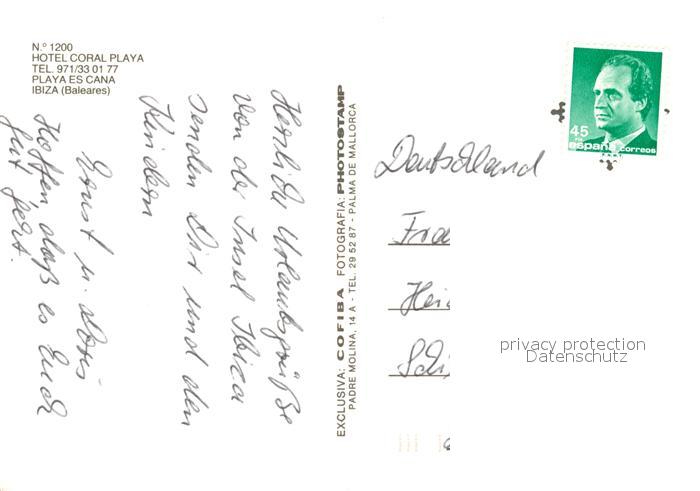 N.º 1200
HOTEL CORAL PLAYA
TEL. 971/33 01 77
PLAYA ES CANA
IBIZA (Baleares)
Herzliche Urlaubsgrüße
von der Insel Ibiza
senden Dir und den
Kindern
Ernst u. Doris
Hoffen, daß es Euch
gut geht.
EXCLUSIVA: COFIBA FOTOGRAFIA: PHOTOSTAMP
PADRE MOLINA, 14 A - TEL. 29 52 87 - PALMA DE MALLORCA
45
PTA
españa correos
Deutschland
Fra
Hei
privacy protection
Datenschutz